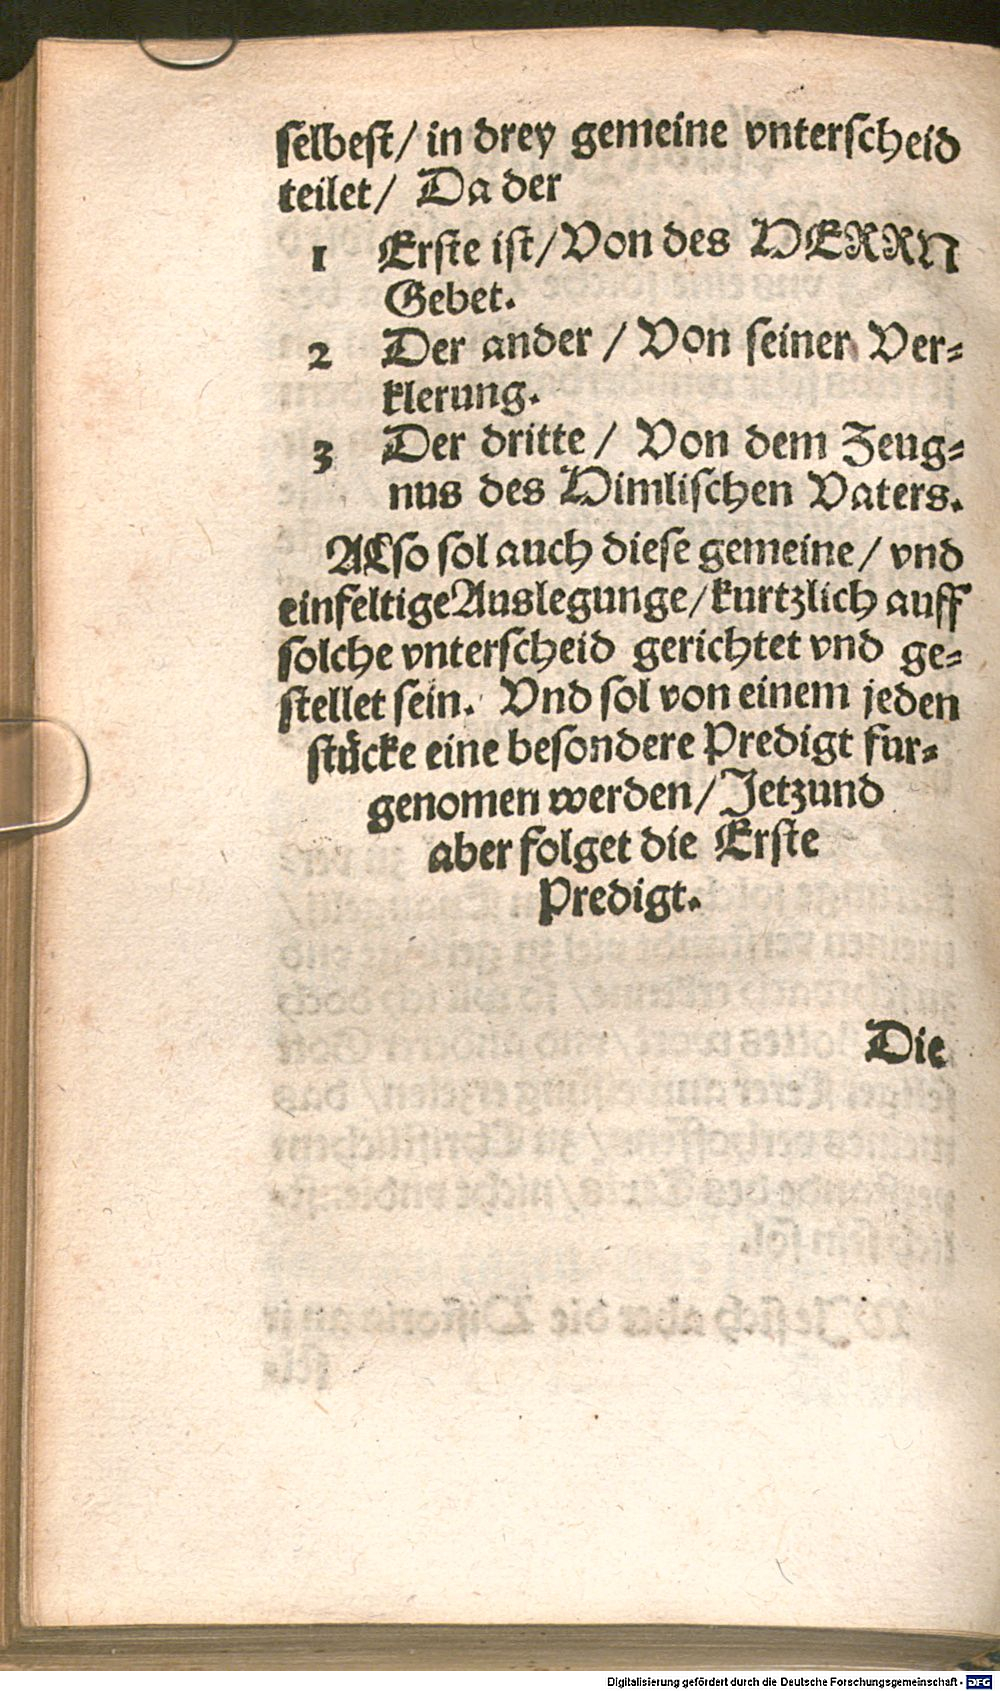 selbest/ in drey gemeine vnterscheid
teilet/ Da der
1 Erste ist/ Von des HERRN
Gebet.
2 Der ander / Von seiner Ver-
klerung.
3 Der dritte / Von dem Zeug-
nus des Himlischen Vaters.
ALso sol auch diese gemeine/ vnd
einfeltige Auslegunge/ kurtzlich auff
solche vnterscheid gerichtet vnd ge-
stellet sein. Vnd sol von einem jeden
stücke eine besondere Predigt fur-
genomen werden/ Jetzund
aber folget die Erste
Predigt.
Die
Digitalisierung gefördert durch die Deutsche Forschungsgemeinschaft - DFG